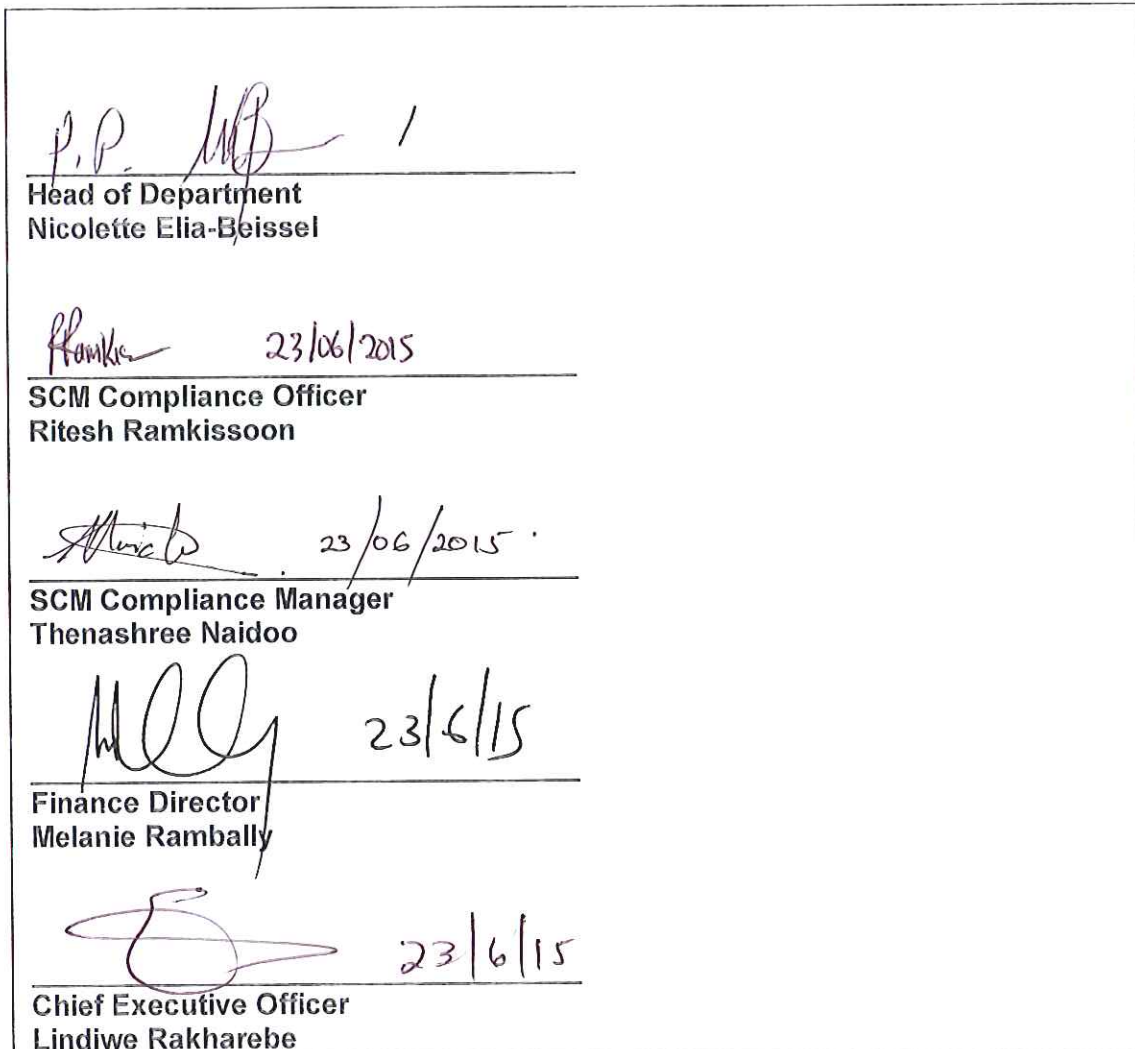 P.P.
Head of Department
Nicolette Elia-Beissel
23/06/2015
SCM Compliance Officer
Ritesh Ramkissoon
23/06/2015
SCM Compliance Manager
Thenashree Naidoo
23/6/15
Finance Director
Melanie Rambally
23/6/15
Chief Executive Officer
Lindiwe Rakharebe